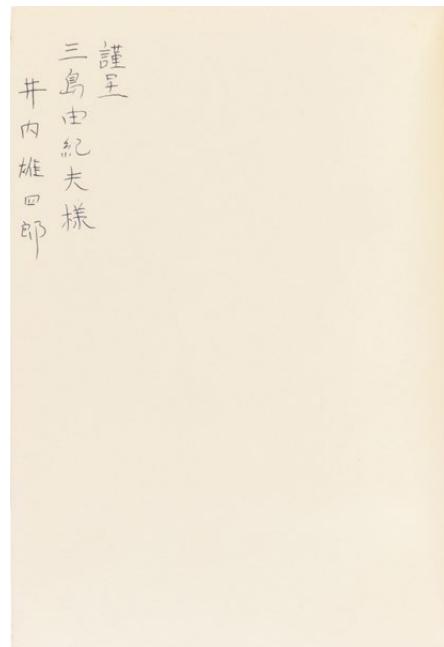 謹呈
三島由紀夫様
井内雄四郎